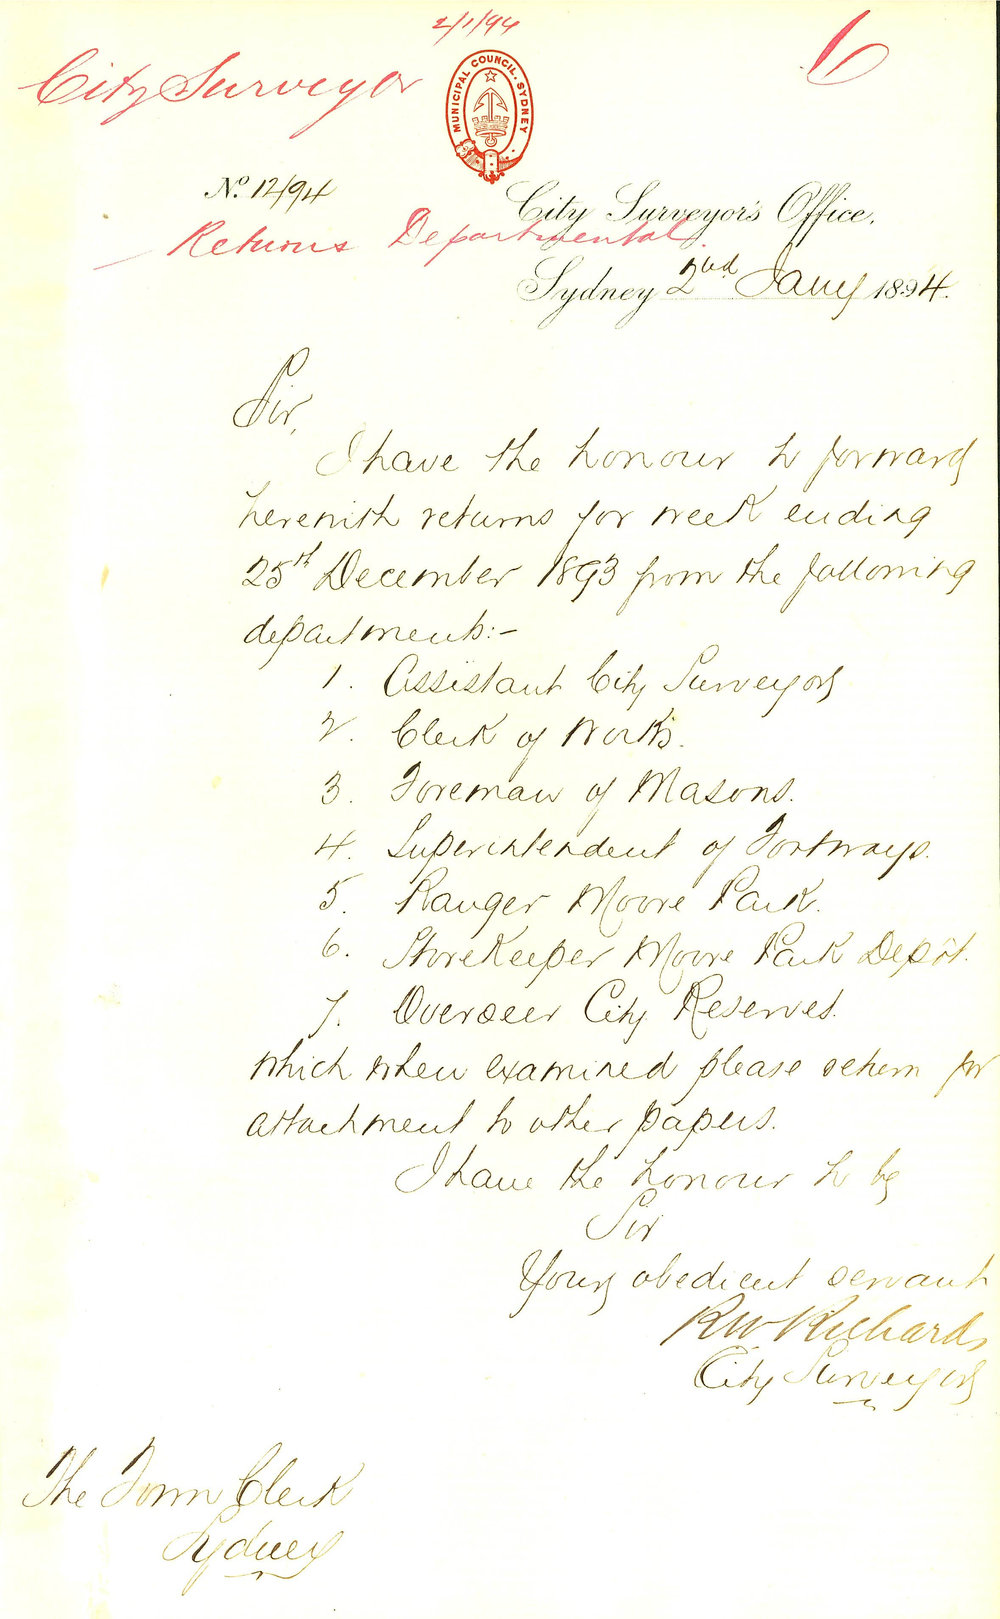 2/1/94
6
City Surveyor
MUNICIPAL COUNCIL. SYDNEY
No. 12/94
City Surveyor's Office.
Returns Departmental.
Sydney 2nd Jany 1894.
Sir,
I have the honour to forward
herewith returns for week ending
25th December 1893 from the following
departments:-
1. Assistant City Surveyor
2. Clerk of Works.
3. Foreman of Masons.
4. Superintendent of Footways.
5. Ranger Moore Park.
6. Storekeeper Moore Park Depôt.
7. Overseer City Reserves.
which when examined please return for
attachment to other papers.
I have the honour to be
Sir
Your obedient servant
RW Richards
City Surveyor
The Town Clerk
Sydney